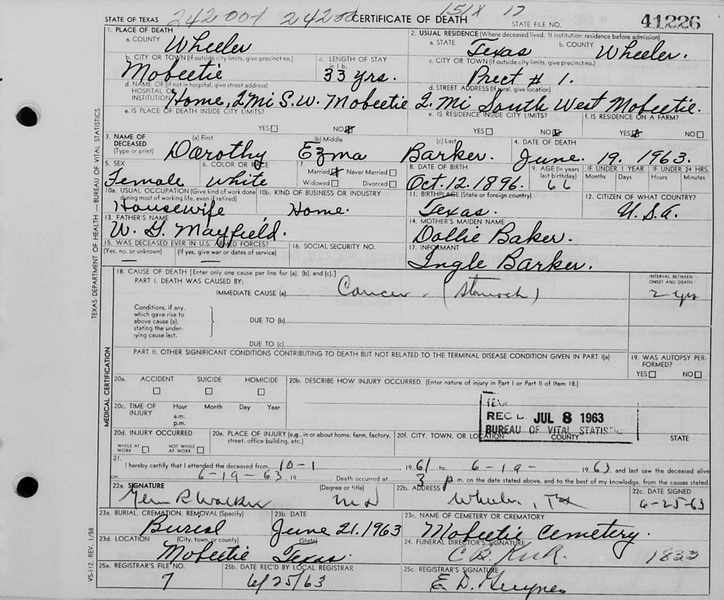 STATE OF TEXAS 242001 CERTIFICATE OF DEATH 151X 17 STATE FILE NO. 41226
1. PLACE OF DEATH 2. USUAL RESIDENCE (Where deceased lived. If institution: residence before admission)
a. COUNTY Wheeler a. STATE Texas b. COUNTY Wheeler.
b. CITY OR TOWN (If outside city limits, give precinct no.) c. LENGTH OF STAY in 1 b. c. CITY OR TOWN (If outside city limits, give precinct no.)
Mobeetie 33 yrs. Prect # 1.
d. NAME OF (If not in hospital, give street address) HOSPITAL OR INSTITUTION d. STREET ADDRESS (If rural, give location)
Home, 2 Mi S.W. Mobeetie 2 Mi South West Mobeetie.
e. IS PLACE OF DEATH INSIDE CITY LIMITS? e. IS RESIDENCE INSIDE CITY LIMITS? f. IS RESIDENCE ON A FARM?
YES NO YES NO YES NO
3. NAME OF DECEASED (Type or print) (a) First (b) Middle (c) Last 4. DATE OF DEATH
Dorothy Ezma Barker. June. 19. 1963.
5. SEX 6. COLOR OR RACE 7. Married Never Married Widowed Divorced 8. DATE OF BIRTH 9. AGE (In years last birthday) IF UNDER 1 YEAR Months Days IF UNDER 24 HRS. Hours Min.
Female White Oct. 12. 1896. 66
10a. USUAL OCCUPATION (Give kind of work done during most of working life, even if retired) 10b. KIND OF BUSINESS OR INDUSTRY 11. BIRTHPLACE (State or foreign country) 12. CITIZEN OF WHAT COUNTRY?
Housewife Home. Texas. U.S.A.
13. FATHER'S NAME 14. MOTHER'S MAIDEN NAME
W. G. Mayfield. Dollie Baker.
15. WAS DECEASED EVER IN U.S. ARMED FORCES? (Yes, no, or unknown) (If yes, give war or dates of service) 16. SOCIAL SECURITY NO. 17. INFORMANT
Ingle Barker.
18. CAUSE OF DEATH [Enter only one cause per line for (a), (b), and (c).] INTERVAL BETWEEN ONSET AND DEATH
PART I. DEATH WAS CAUSED BY:
IMMEDIATE CAUSE (a) Cancer (Stomach) 2 yrs
Conditions, if any, which gave rise to above cause (a), stating the underlying cause last.
DUE TO (b)
DUE TO (c)
PART II. OTHER SIGNIFICANT CONDITIONS CONTRIBUTING TO DEATH BUT NOT RELATED TO THE TERMINAL DISEASE CONDITION GIVEN IN PART I(a) 19. WAS AUTOPSY PERFORMED?
YES NO
20a. ACCIDENT SUICIDE HOMICIDE 20b. DESCRIBE HOW INJURY OCCURRED. (Enter nature of injury in Part I or Part II of item 18.)
20c. TIME OF INJURY Hour Month Day Year a.m. p.m.
REC'D JUL 8 1963
BUREAU OF VITAL STATISTIC
20d. INJURY OCCURRED WHILE AT WORK NOT WHILE AT WORK 20e. PLACE OF INJURY (e.g., in or about home, farm, factory, street, office building, etc.) 20f. CITY, TOWN, OR LOCATION COUNTY STATE
21. I hereby certify that I attended the deceased from 10-1 1961 to 6-19- 1963 and last saw the deceased alive
on 6-19-63 Death occurred at 3 p m. on the date stated above, and to the best of my knowledge, from the causes stated.
22a. SIGNATURE (Degree or title) 22b. ADDRESS 22c. DATE SIGNED
Walker MD Wheeler, Tex 6-25-63
23a. BURIAL, CREMATION, REMOVAL (Specify) 23b. DATE 23c. NAME OF CEMETERY OR CREMATORY
Burial June 21. 1963 Mobeetie Cemetery.
23d. LOCATION (City, town, or county) (State) 24. FUNERAL DIRECTOR'S SIGNATURE
Mobeetie Texas. 1833
25a. REGISTRAR'S FILE NO. 25b. DATE REC'D BY LOCAL REGISTRAR 25c. REGISTRAR'S SIGNATURE
7 6/25/63
TEXAS DEPARTMENT OF HEALTH—BUREAU OF VITAL STATISTICS
MEDICAL CERTIFICATION
VS-112, REV. 1/58